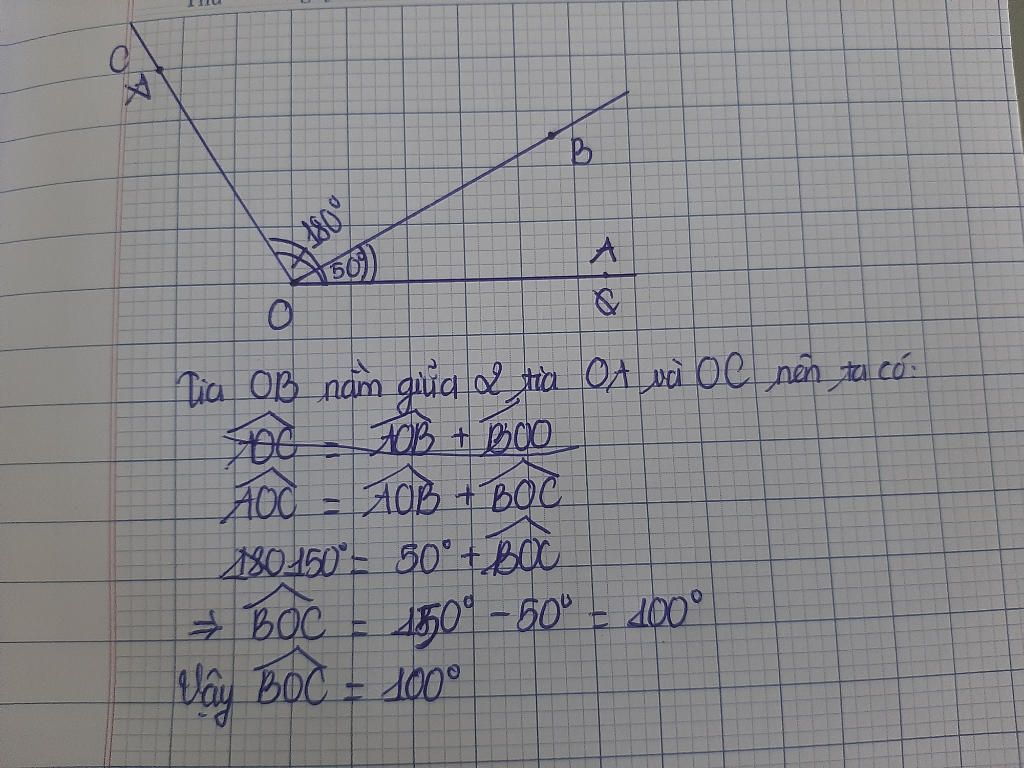 C
A
B
180°
50°
A
O
C
Tia OB nằm giữa 2 tia OA và OC nên ta có:
AOC = AOB + BOO
AOC = AOB + BOC
180 150° = 50° + BOC
⇒ BOC = 150° - 50° = 100°
Vậy BOC = 100°